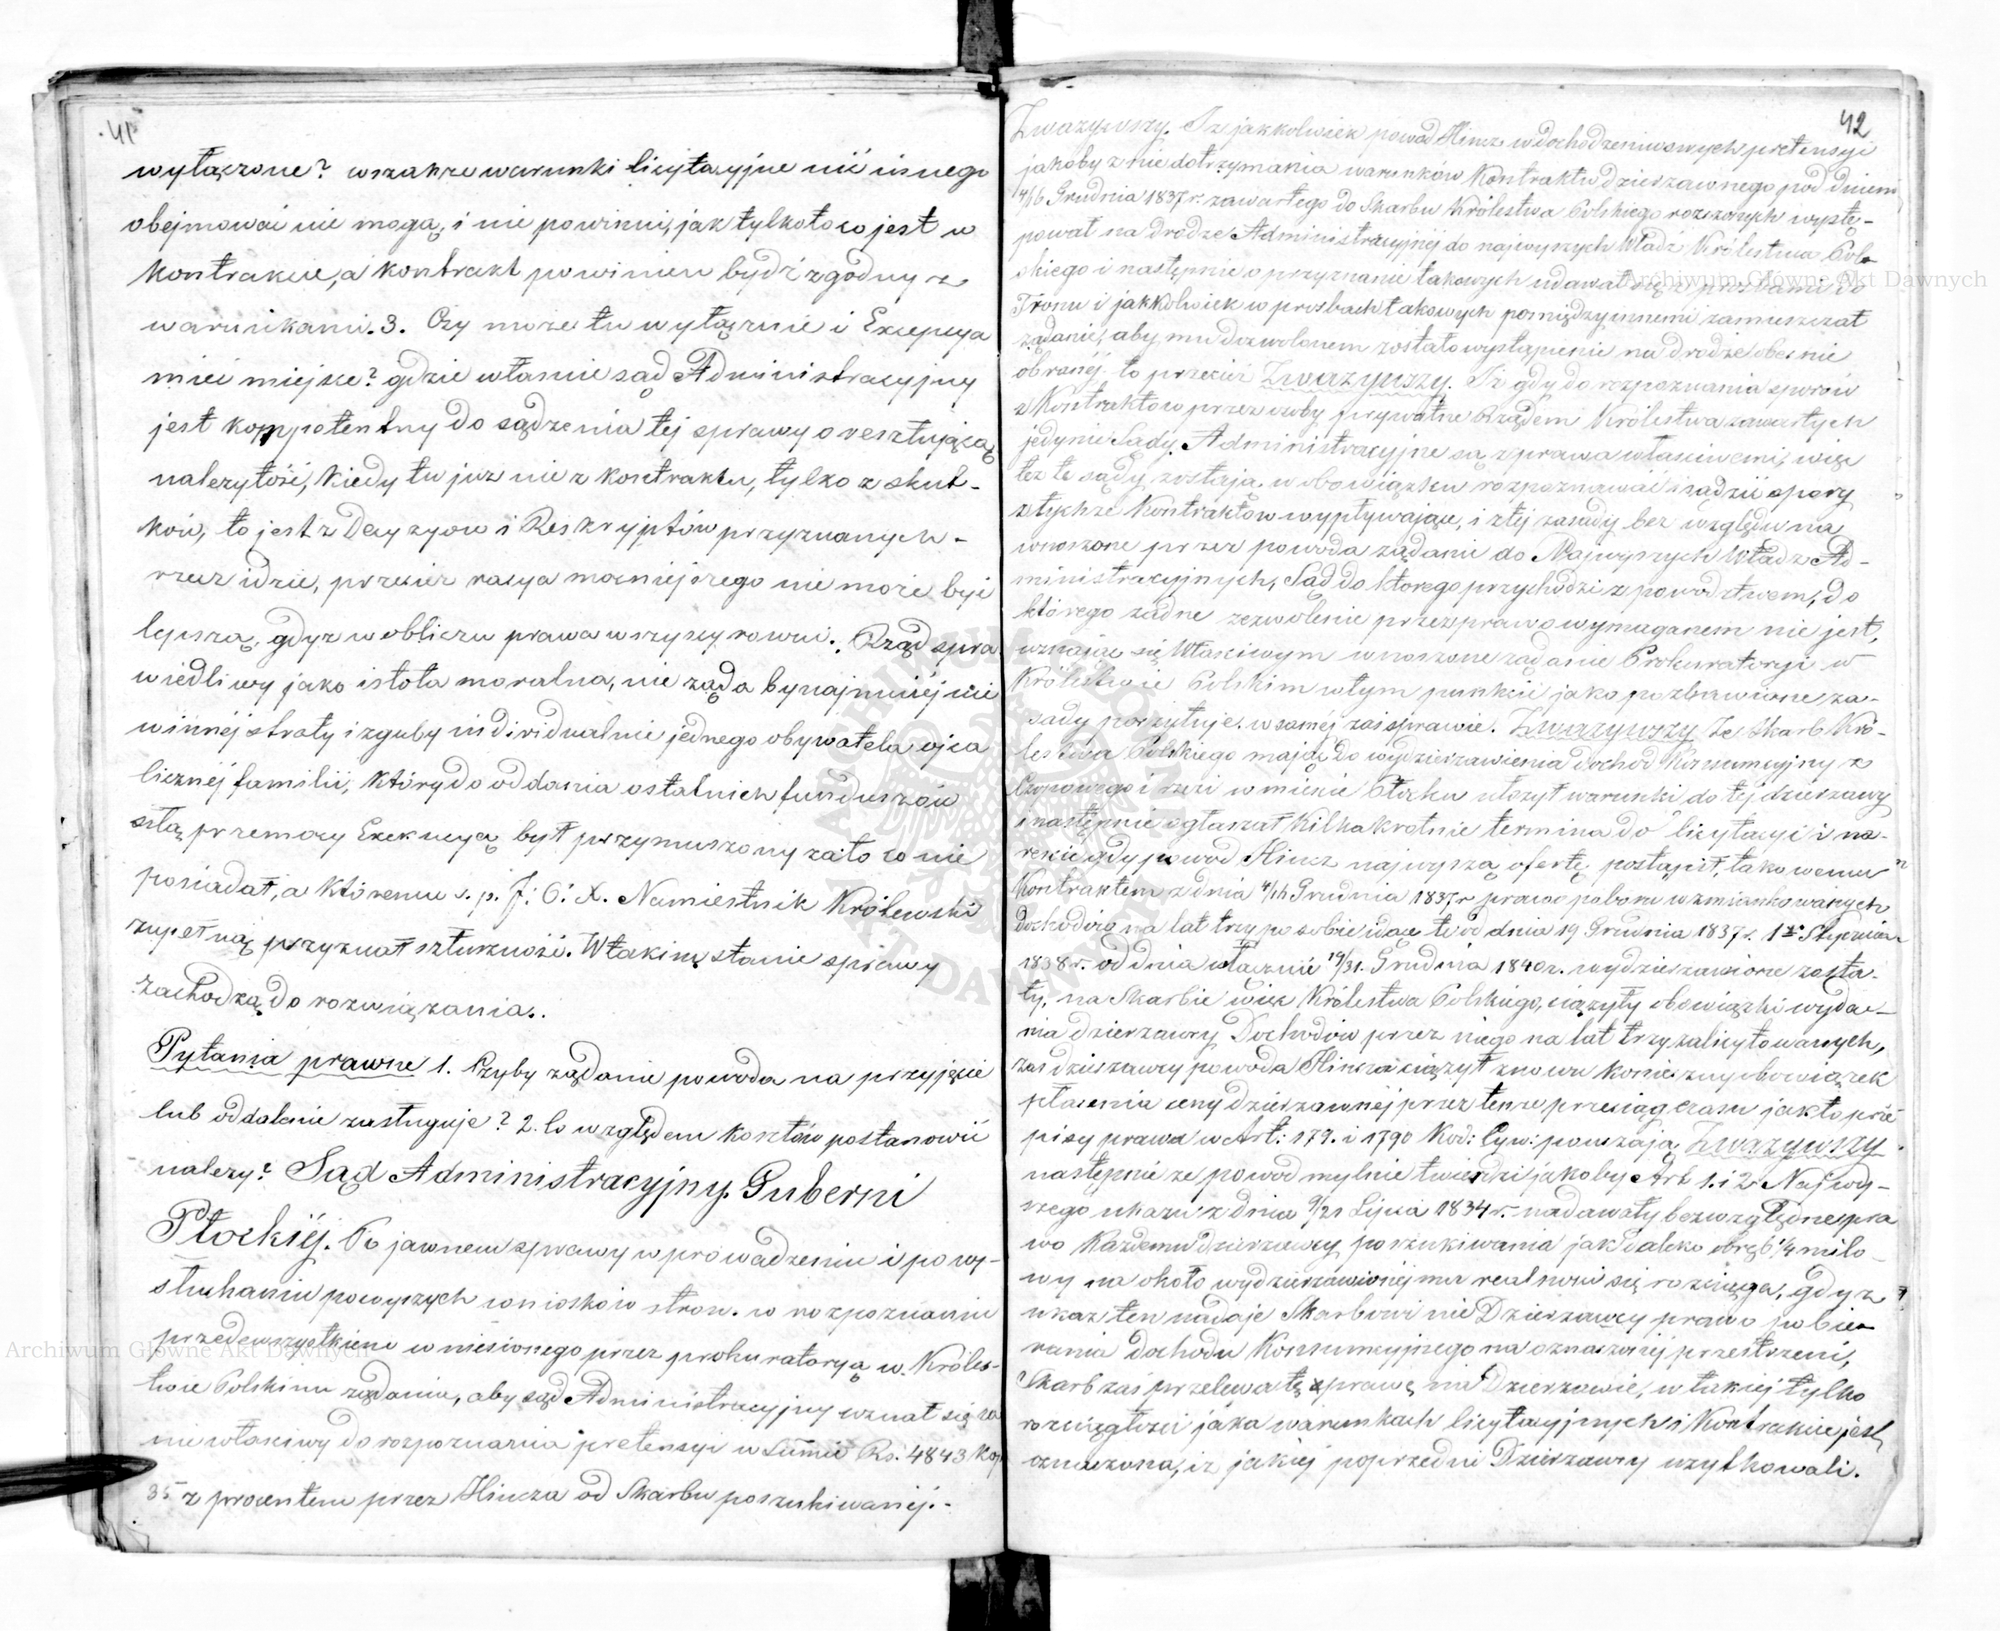 41
wyłączone? wszakże warunki licytacyjne nic innego
obejmować nie mogą, i nie powinni, jak tylko to co jest w
kontrakcie, a kontrakt powinien bydź zgodny z
warunkami. 3. Czy może tu wyłącznie i Excepcya
mieć miejsce? gdzie właśnie sąd Administracyjny
jest kompetentny do sądzenia tej sprawy o resztującą
należytość, kiedy tu już nie z kontraktu, tylko z skut-
ków, to jest z Decyzyow i Reskryptów przyznanych-
rzecz idzie, przecież racya mocniejszego nie może być
lepszą, gdyż w obliczu prawa wszyscy rowni. Rząd spra
wiedliwy jako istota moralna, nie żąda bynajmniéj nie
winnéj straty i zguby individualnie jednego obywatela ojca
licznéj familii, który do oddania ostatnich funduszów
siłą przemocy Exekucyą był przymuszony za to co nie
posiadał, a któremu s. p. J: O: X. Namiestnik Królewski
zupełną przyznał szłuszność. W takim stanie sprawy
zachodzą do rozwiązania..
Pytania prawne 1. Czyby żądanie powoda na przyjęcie
lub oddalenie zasługuje? 2. Co względem kosztów postanowić
należy? Sąd Administracyjny Guberni
Płockiéj. Po jawnem sprawy wprowadzeniu i po wy-
słuchaniu powyższych wniosków stron. w rozpoznaniu
przedewszystkiem wniesionego przez prokuratoryą w Króles-
twie Polskim żądania, aby sąd Administracyjny uznał się za
niewłaściwy do rozpoznania pretensyi w Summie Rs. 4843 kop
35 z procentem przez Hincza od Skarbu poszukiwanéj.-
42
Zważywszy. Iż jakkolwiek powód Hincz w dochodzeniu swych pretensyi
jakoby z niedotrzymania warunków Kontraktu dzierżawnego pod dniem
4/16 Grudnia 1837 r. zawartego do Skarbu Królestwa Polskiego roszczonych wystę-
pował na drodze Administracyjnéj do najwyższych Władz Królestwa Pol-
skiego i następnie o przyznanie takowych udawał się z prozbami do
Tronu i jakkolwiek w prośbach takowych pomiędzy innemi zamieszczał
żądanie, aby mu dozwolonem zostało wystąpienie na drodze obecnie
obranéj to przecież Zważywszy. Iż gdy do rozpoznania sporów
z Kontraktów przez osoby prywatne z Rządem Królestwa zawartych
jedynie Sądy Administracyjne są z prawa właściwemi, więc
też te sądy zostają w obowiązku rozpoznawać i sądzić spory
z tychże Kontraktów wypływające, i z tej zasady bez względu na
wnoszone przez powoda żądanie do Najwyższych Władz Ad-
ministracyjnych, Sąd do ktorego przychodzi z powództwem, do
którego żadne zezwolenie przez prawo wymaganem nie jest,
uznając się Właściwym wnoszone żądanie Prokuratoryi w
Królestwie Polskim w tym punkcie jako pozbawione za-
sady poczytuje. w saméj zaś sprawie. Zważywszy że Skarb Kró-
lestwa Polskiego mając do wydzierżawienia dochód Konsumcyjny z
Czopowego i rzezi w mieście Płocku ułożył warunki do téj dzierżawy
i następnie ogłaszał kilkakrotnie termina do licytacyi i na-
reszcie gdy powod Hincz najwyższą ofertę postąpił, takowemu
Kontraktem z dnia 4/16 Grudnia 1837 r prawo poboru wzmiankowanych
dochodów na lat trzy po sobie idące to od dnia 19 Grudnia 1837 r. 1go Stycznia
1838 r. od dnia włącznie 19/31. Grudnia 1840 r. wydzierżawione zosta-
ły, na Skarbie więc Królestwa Polskiego, ciążyły obowiązki wyda-
nia dzierżawcy Dochodów przez niego na lat trzy zalicytowanych,
zaś dzierżawcy powoda Hincza ciążył znowu konieczny obowiązek
płacenia ceny dzierżawnéj przez tenże przeciąg czasu jak to prze
pisy prawa w Art: 179. i 1790 Kod: Cyw: pouczają. Zważywszy
następnie że powod mylnie twierdzi jakoby Art 1. i 2 Najwy-
ższego ukazu z dnia 9/21 Lipca 1834 r. nadawały bezwzględne pra
wo każdemu dzierżawcy poszukiwania jak daleko obręb 1/4 milo-
wy na około wydzierżawionéj mu realności się rozciąga, gdyż
ukaz ten nadaje Skarbowi nie Dzierżawcy prawo pobie-
rania dochodu Konsumcyjnego na oznaczonéj przestrzeni,
Skarb zaś przelewa tę prawę na Dzierżawcę, w takiéj tylko
rozciągłości jaka warunkach licytacyjnych i Kontrakcie jest
oznaczona, i z jakiéj poprzedni Dzierżawcy użytkowali.